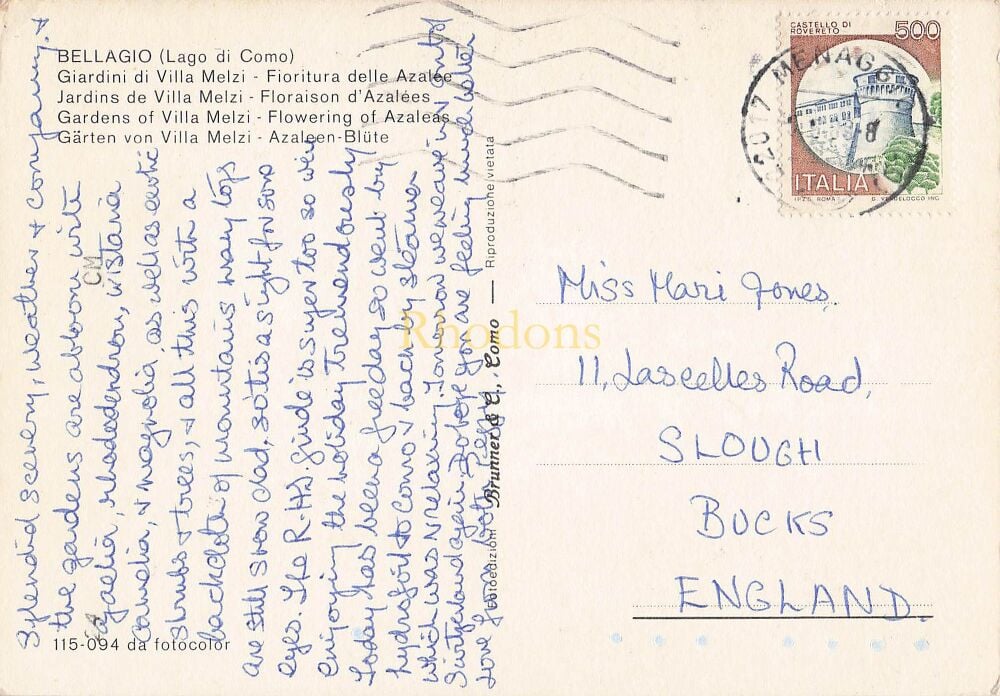 BELLAGIO (Lago di Como)
Giardini di Villa Melzi - Fioritura delle Azalee
Jardins de Villa Melzi - Floraison d'Azalées
Gardens of Villa Melzi - Flowering of Azaleas
Gärten von Villa Melzi - Azaleen-Blüte
Splendid scenery, weather & company. &
the gardens are abloom with
azaelia, rhododendron, wistaria
camelia, & magnolia, as well as exotic
shrubs & trees, & all this with a
backdrop of mountains many tops
are still snow clad, so it is a sight for sore
eyes. The R.H.S. guide is super too so we're
enjoying the holiday tremendously
Today has been a free day so went by
hydrofoil to Como & back by steamer
which was v relaxing. Tomorrow we are in
Switzerland again. Do hope you are feeling much better
Love from
115-094 da fotocolor
Fotoedizioni Brunner & C., Como — Riproduzione vietata
CM
Rhodons
CASTELLO DI
ROVERETO
500
ITALIA
I.P.Z.S. ROMA
22017 MENAGGIO
Miss Mari Jones.
11, Lascelles Road,
SLOUGH
BUCKS
ENGLAND.